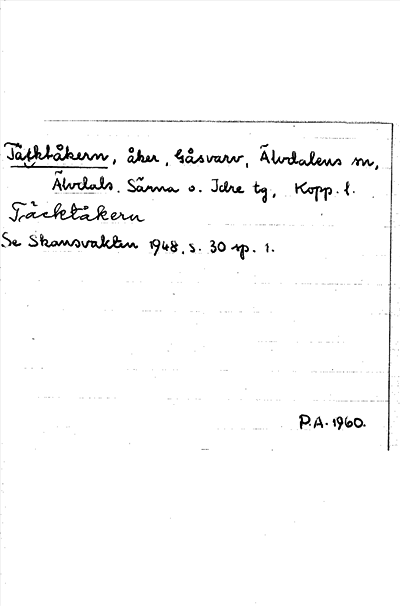 Täcktåkern, åker, Gåsvarv, Älvdalens sn,
Älvdals. Särna o. Idre tg, Kopp. l.
Täcktåkern
Se Skansvakten 1948, s. 30 sp. 1.
P.A. 1960.